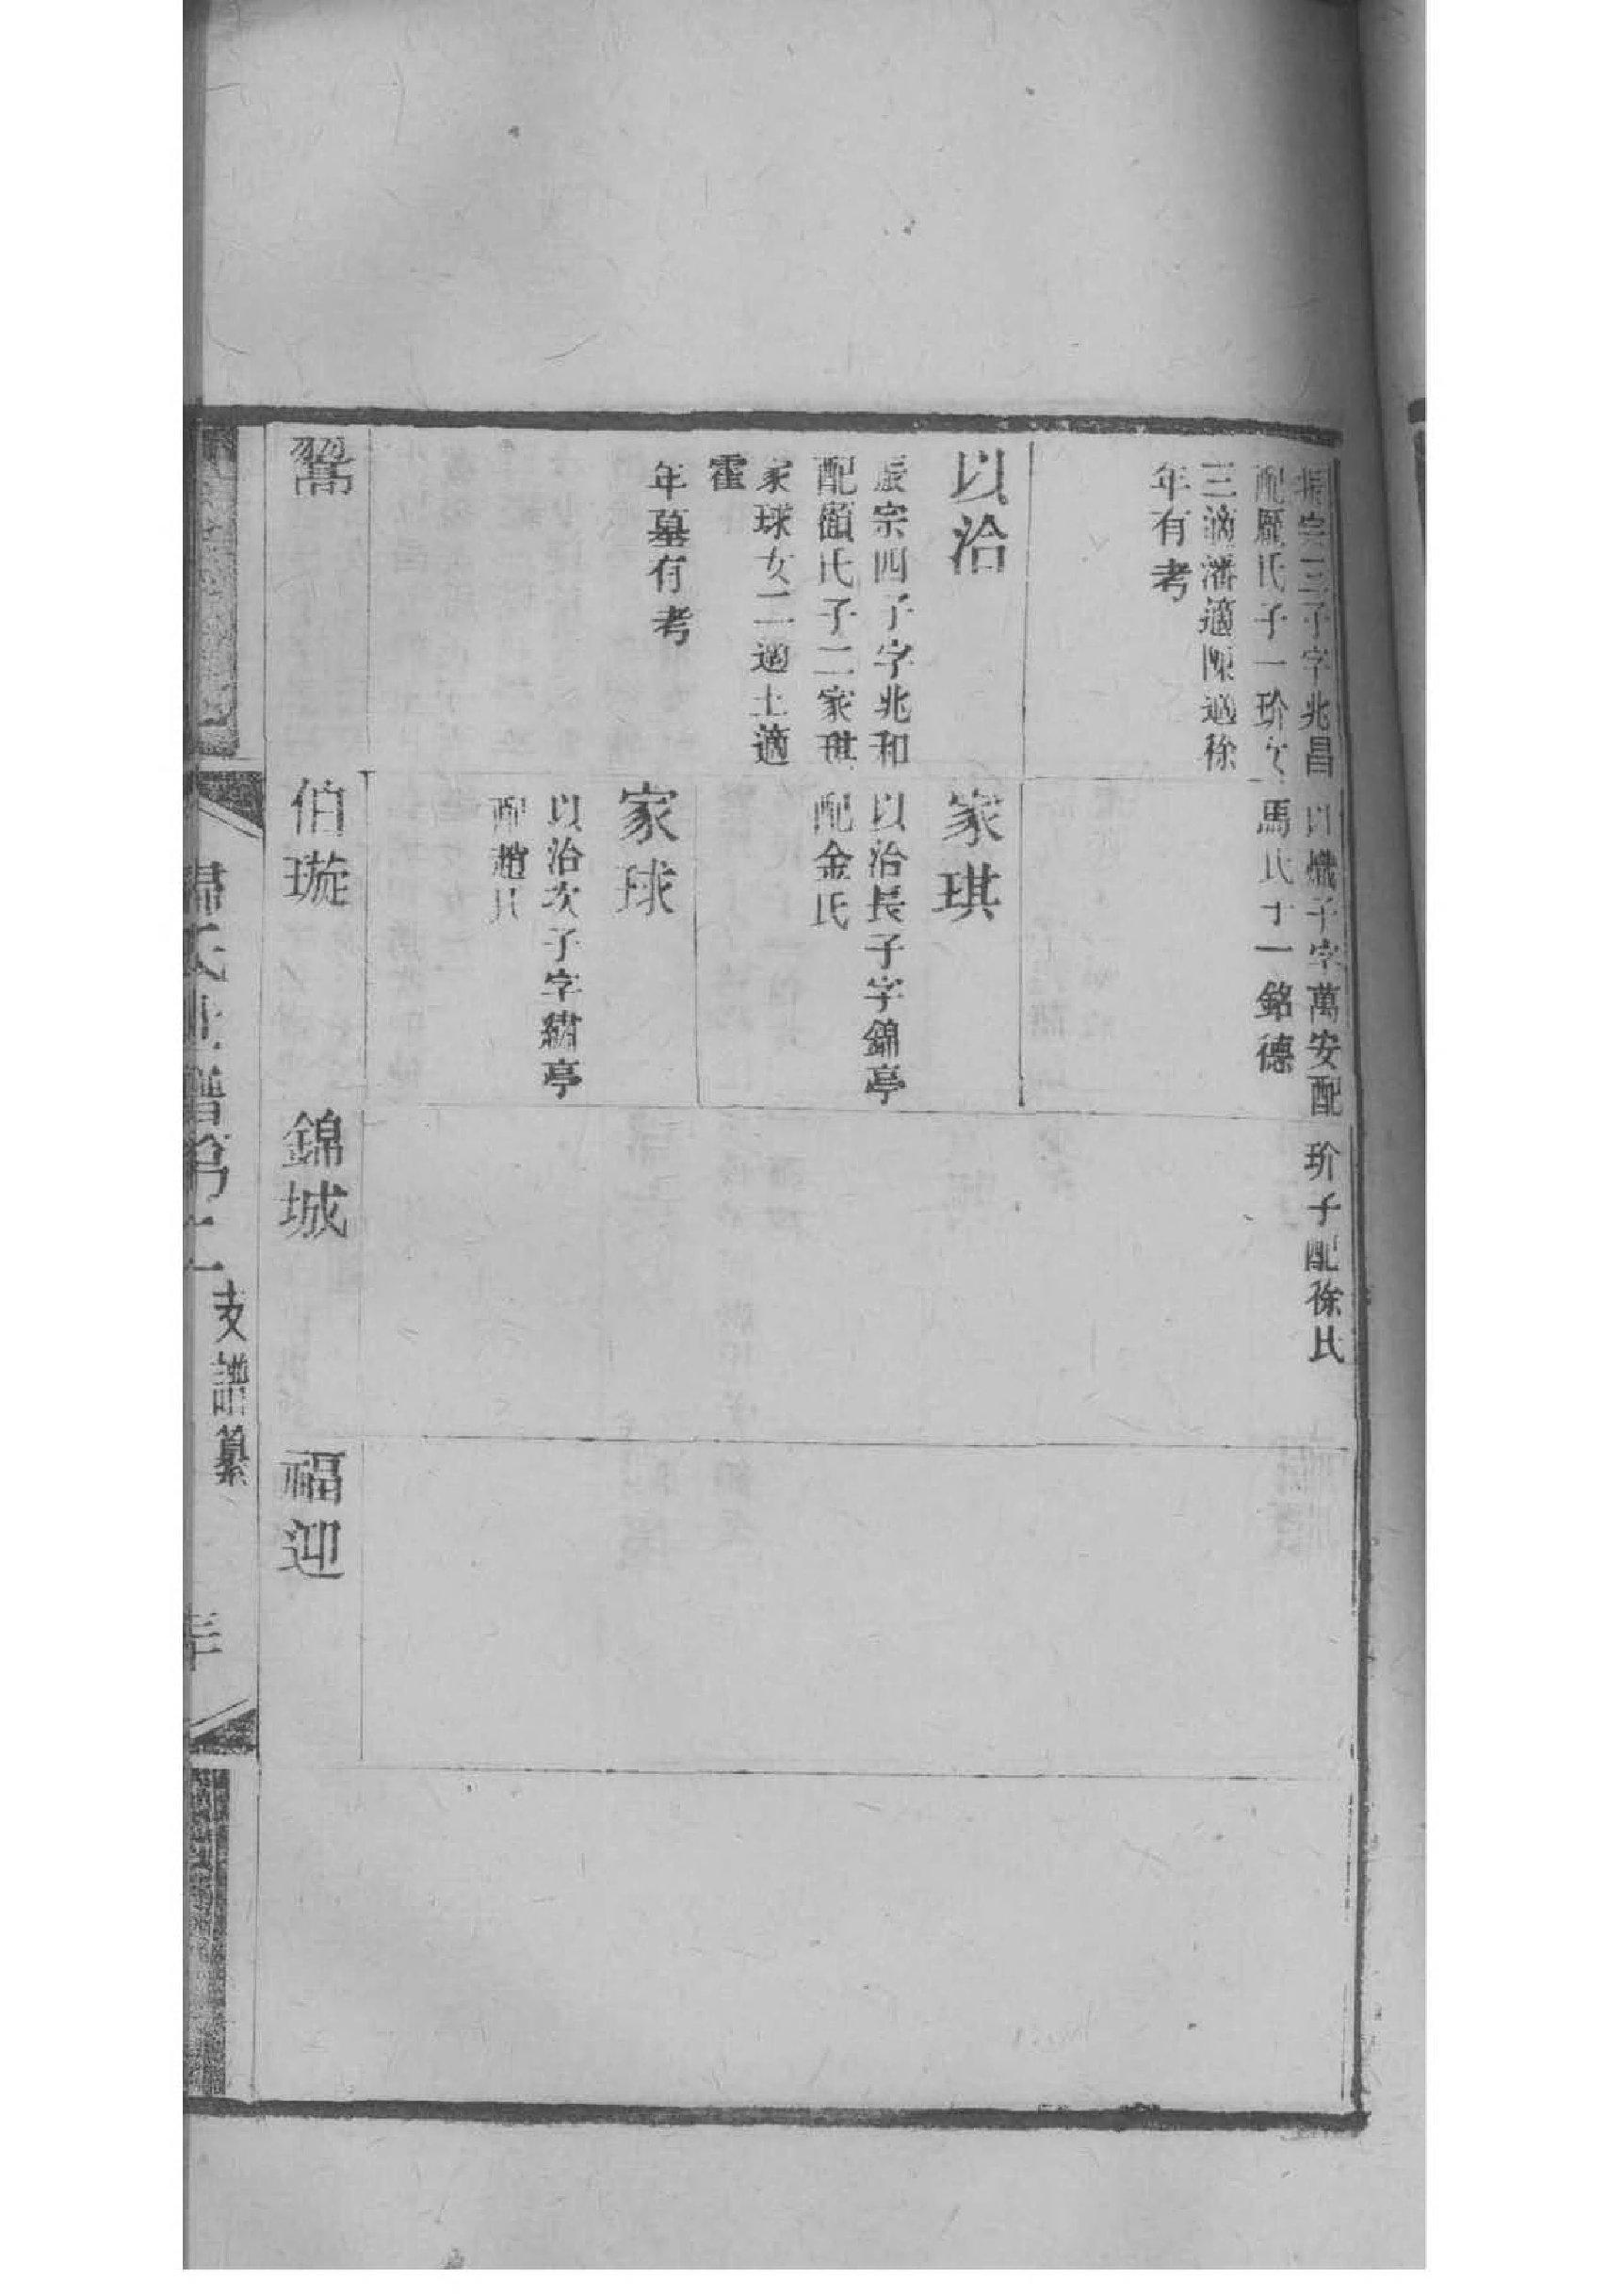 振宗三子字兆昌
配嚴氏子一玠女
三適潘適陳適徐
年有考
以熾子字萬安配
馬氏子一銘德
玠子配徐氏
以治
宗四子字兆和
配顧氏子二家琪
家球女二適土適
霍
年墓有考
家琪
以治長子字錦亭
配金氏
家球
以治次子字繡亭
配趙氏
翯
伯璇
錦城
福迎
歸氏世譜第十一
支譜纂